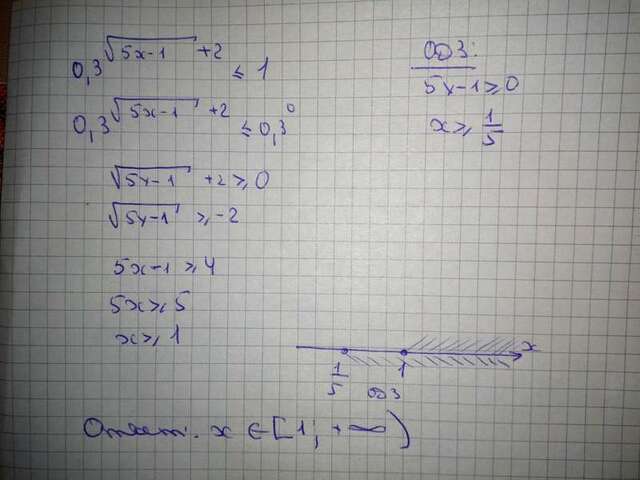 0,3^{√(5x-1) +2} ≤ 1
0,3^{√(5x-1) +2} ≤ 0,3^0
√(5x-1) +2 ≥ 0
√(5x-1) ≥ -2
5x-1 ≥ 4
5x ≥ 5
x ≥ 1
ОДЗ:
5x-1 ≥ 0
x ≥ 1/5
x
1/5 1
ОДЗ
Ответ: x ∈ [1; +∞)